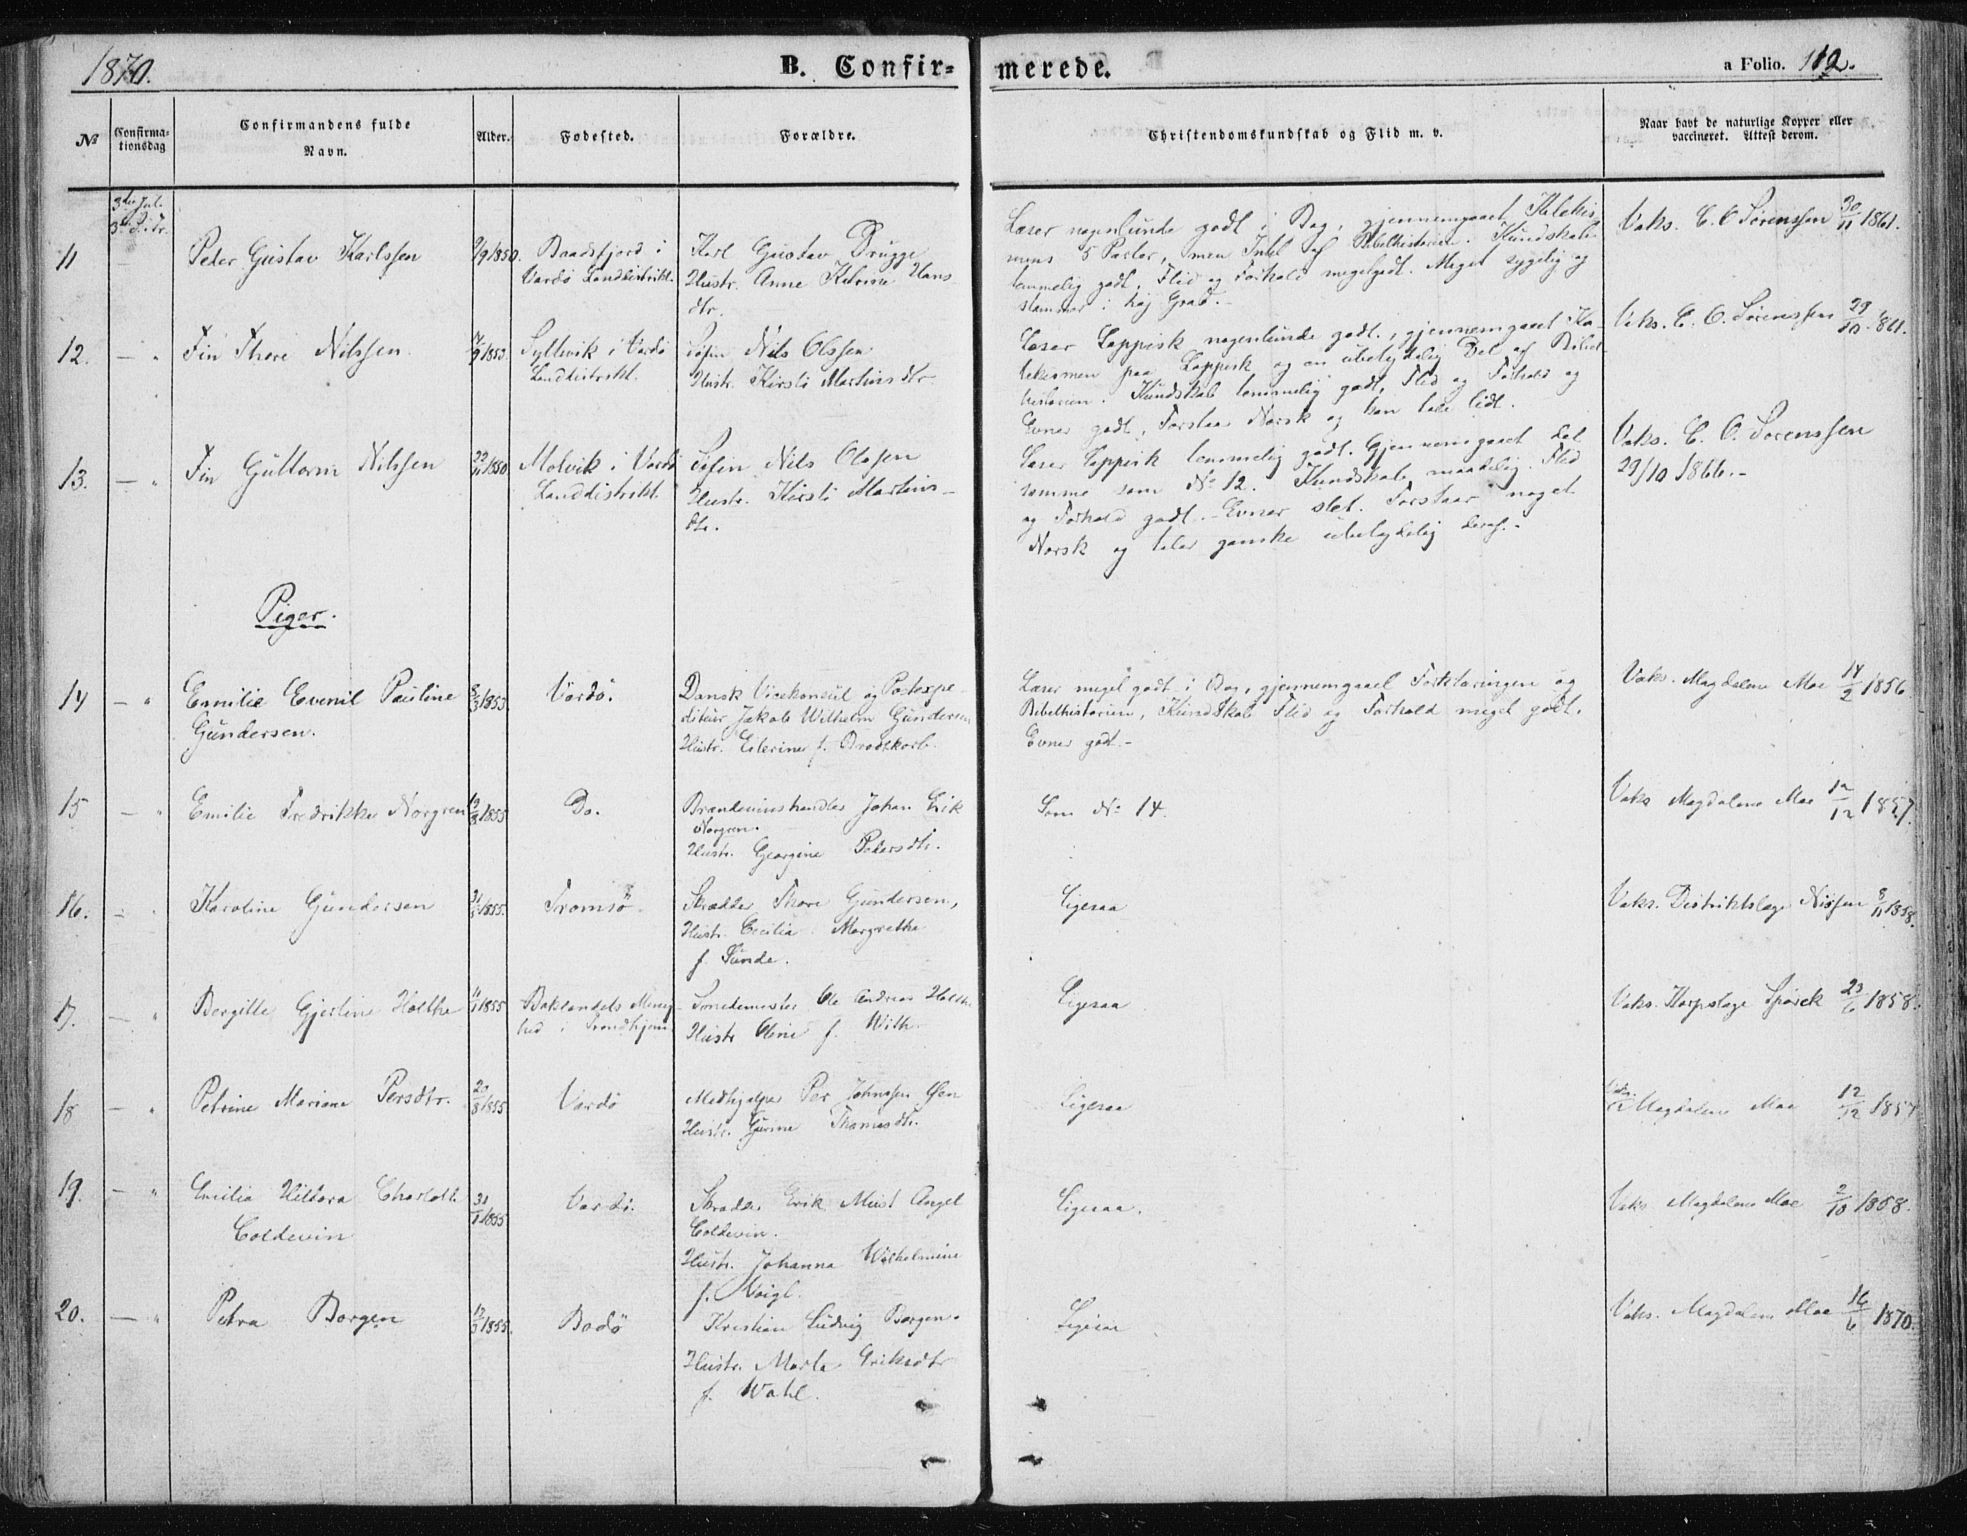 1870.
B. Confir-
merede.
a Folio. 112.
No
Confirma-
tionsdag
Confirmandens fulde
Navn.
Alder.
Fødested.
Forældre.
Christendomskundskab og Flid m. v.
Naar havt de naturlige Kopper eller
vaccineret. Attest derom.
11
Peter Gustav Karlssen
1850.
Baadsfjord i
Vardø Landdistrikt.
Karl Gustav Brugge
Hustr. Anne Katrine Hans
dtr.
Læser nogenlunde godt i Bog, gjennemgaaet Katekis
mens 5 Parter, men Intet af Bibelhistorien. Kundskab
temmelig godt, Flid og Forhold megetgodt. Meget sygelig og
stammer i høj Grad.
Vaks. C. O Sørenssen 30/11 1861.
12.
Fin Thore Nilssen
1853
Syltevik i Vardø
Landdistrikt.
Søfin Nils Olssen
Hustr. Kirsti Martinsdtr.
Læser Lappisk nogenlunde godt, gjennemgaaet Ka-
tekismen paa Lappisk og en ubetydelig Del af Bibel-
historien. Kundskab temmelig godt, Flid og Forhold og
Evner godt, Forstaar Norsk og kan tale lidt.
Vaks. C. O. Sørenssen 29/10 1861.
13.
Fin Guttorm Nilssen
22/11 1850
Molvik i Vardø
Landdistrikt.
Søfin Nils Olssen
Hustr. Kirsti Martins-
dtr.
Læser Lappisk temmelig godt. Gjennemgaaet det
samme som No 12. Kundskab maadelig. Flid
og Forhold godt. - Evner slet. Forstaar noget
Norsk og taler ganske ubetydelig deraf. -
Vaks. C. O. Sørenssen
29/10 1866. -
Piger.
14
Emilie Evenil Pauline
Gundersen.
1853
Vardø.
Dansk Vicekonsul og Postexpe-
ditør Jakob Wilhelm Gundersen
Hustr. f. Brodtkorb.
Læser meget godt i Bog, gjennemgaaet Forklaringen og
Bibelhistorien, Kundskab Flid og Forhold meget godt.
Evner godt -
Vaks. Magdalene Moe 14/2 1856
15
Emilie Fredrikke Norgren
1855
Do.
Brændevinshandler Johan Erik
Norgren.
Hustr. Georgine Petersdtr.
Som No 14.
Vaks Magdalene Moe 12/12 1857.
16.
Karoline Gundersen
1855.
Tromsø.
Skrædder Thore Gundersen,
Hustr. Cecilia Margrethe
f. Sunde.
Ligesaa
Vaks. Distriktslæge Nissen 8/11 1858.
17.
Bergitte Gjertine Holthe
1855
Baklandets Menig-
hed i Trondhjem
Smedemester Ole Andreas Holthe
Hustr Oline f. With
Ligesaa
Vaks. Korpslæge Spørck 23/6 1858.
18
Petrine Mariane Persdtr.
20/8 1855
Vardø
Medhjelper Per Johnsen Øen
Hustr. Gurine Thomasdtr.
Ligesaa
Vaks. Magdalene Moe 12/12 1857
19.
Emilia Hildora Charlotte
Coldevin
31/1 1855
Vardø.
Skrædder Erik Must Angel
Coldevin.
Hustr. Johanna Wilhelmine
f. Voigt.
Ligesaa.
Vaks. Magdalene Moe 2/10 1858.
20.
Petra Borgen
1855.
Bodø
Kristian Ludvig Borgen.
Hustr. Marta Eriksdtr
f. Wahl.
Ligesaa
Vaks. Magdalene Moe 16/6 1870.